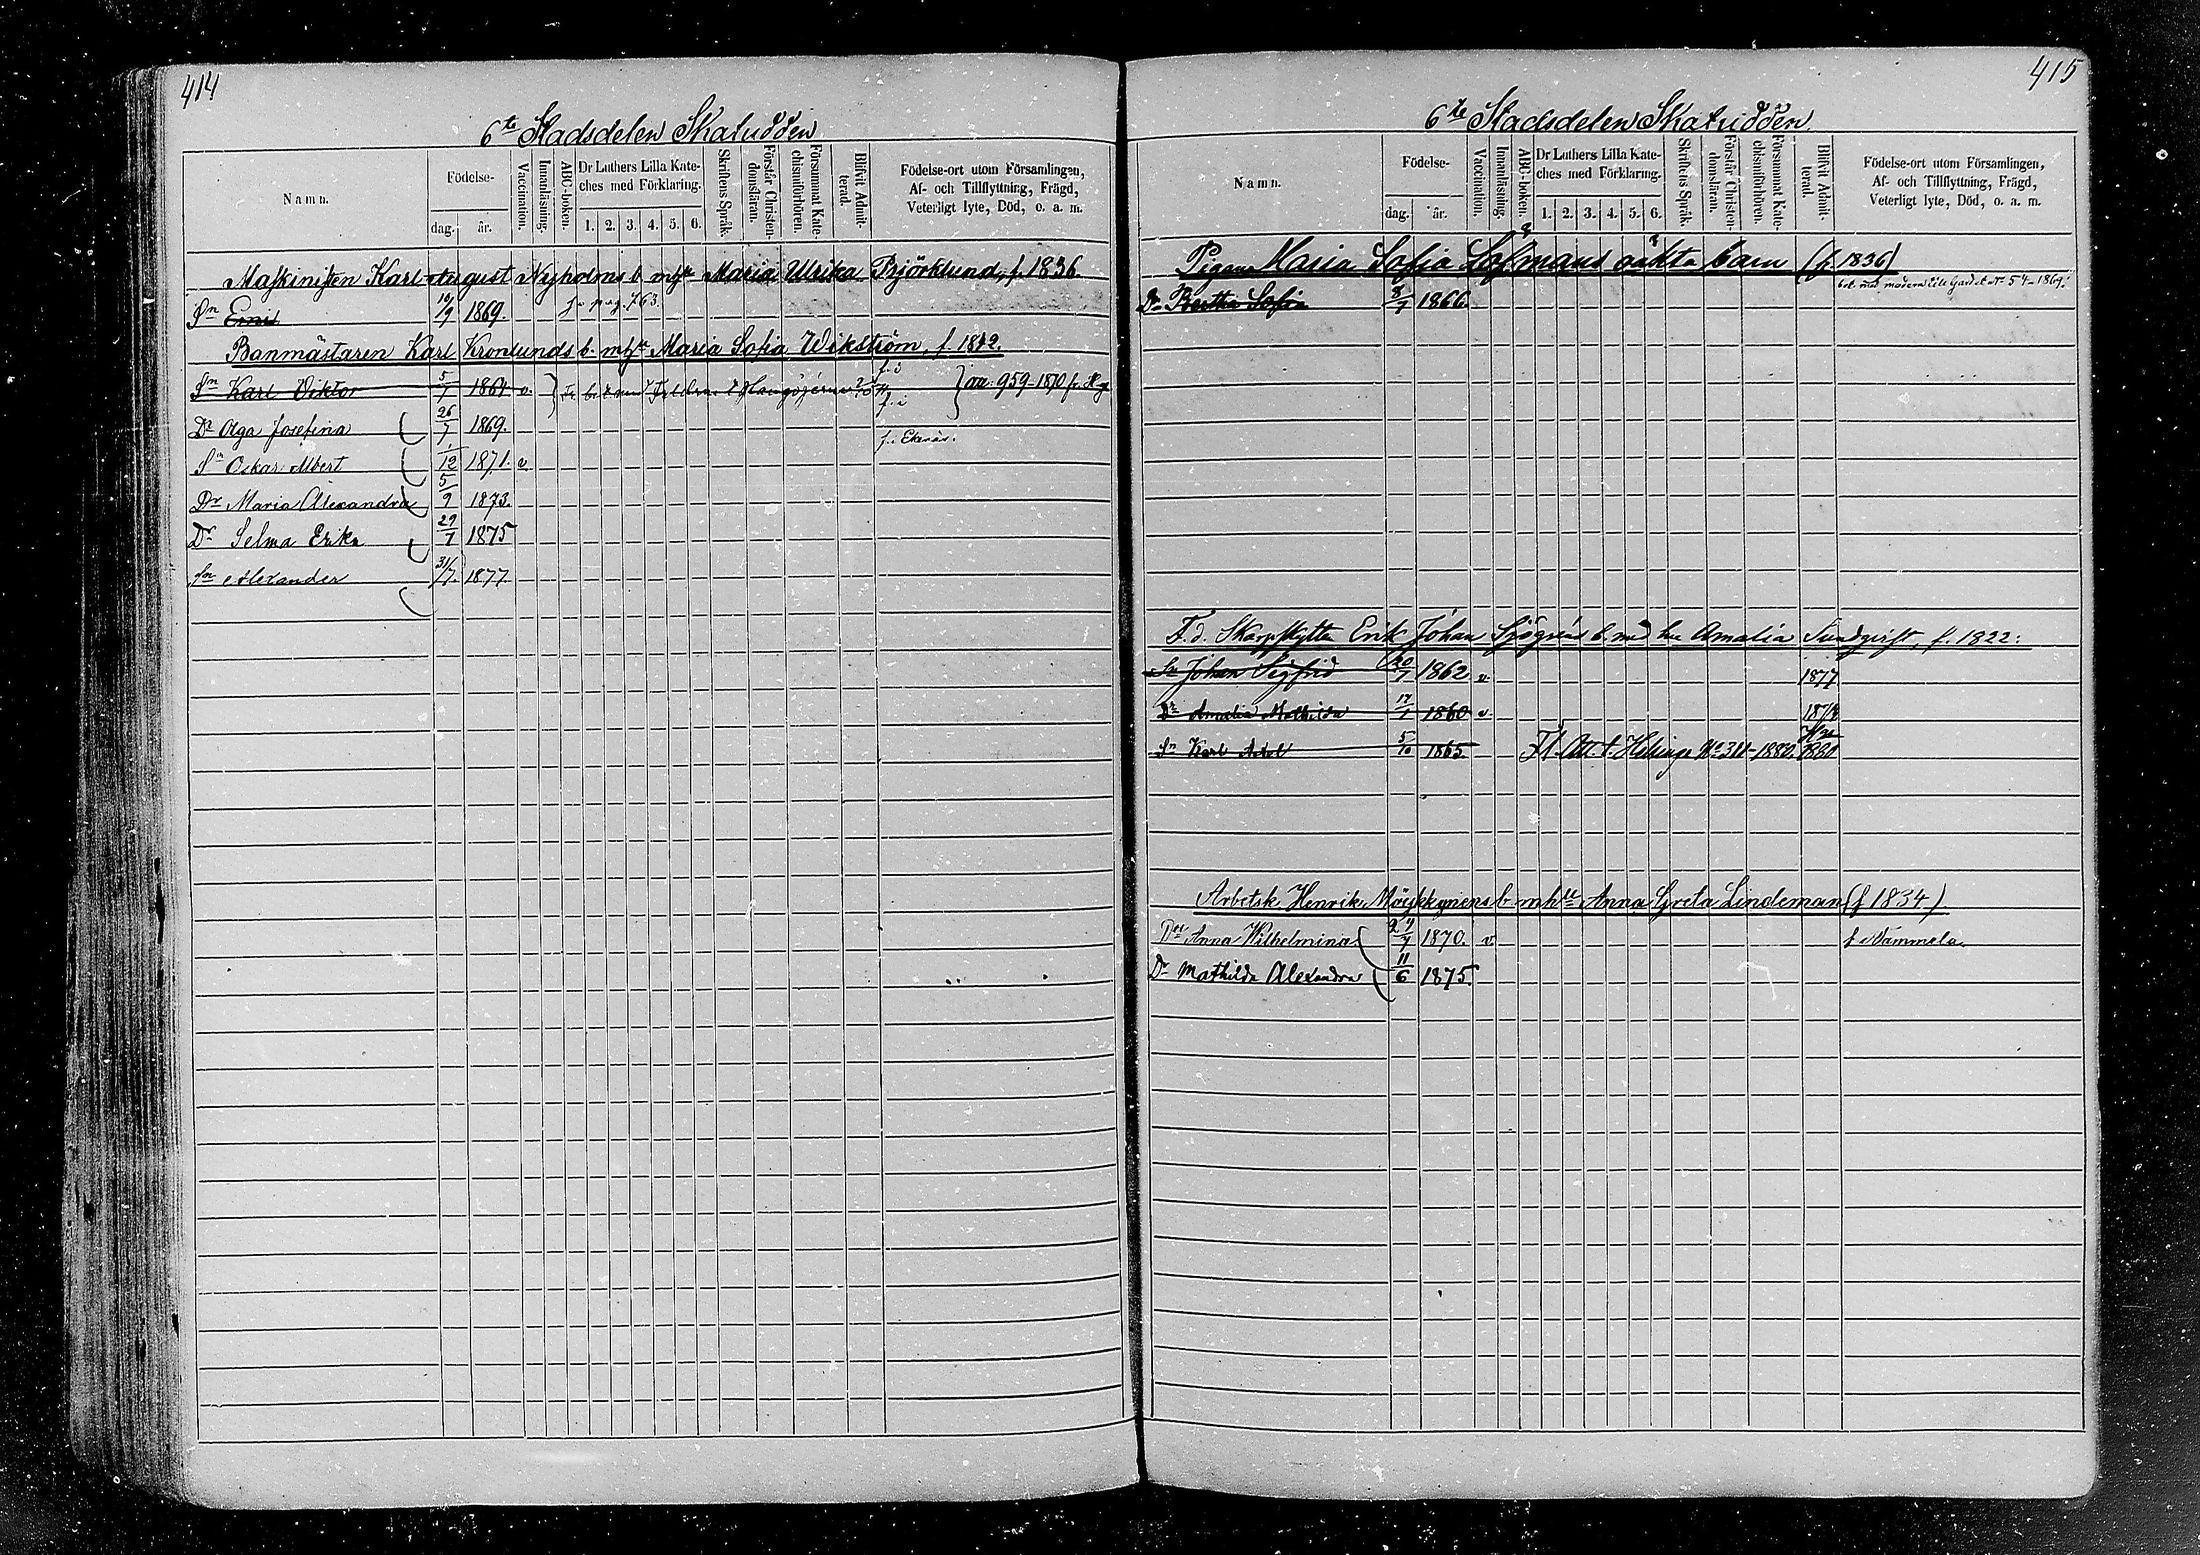 414
6te Stadsdelen Skatudden
Namn.
Födelse-
dag. år.
Vaccination.
Innanläsning.
ABC-boken.
Dr Luthers Lilla Kate-
ches med Förklaring.
1. 2. 3. 4. 5. 6.
Skriftens Språk.
Förstår Christen-
domsläran.
Försummat Kate-
chismiförhören.
Blifvit Admit-
terad.
Födelse-ort utom Församlingen,
Af- och Tillflyttning, Frägd,
Veterligt lyte, Död, o. a. m.
Maskinisten Karl August Nyholms b. m hu Maria Ulrika Björklund, f. 1836.
Sn Emil 10/9 1869. pag. 763.
Banmästaren Karl Kronlunds b. m hu Maria Sofia Wikström, f. 1842.
Sn Karl Viktor 5/7 1864 v. f. i 959-1870 fr. Hg
Dr Olga Josefina 26/7 1869. f. i
Sn Oskar Albert 1/12 1871. v f. i Ekenäs.
Dr Maria Alexandra 5/9 1873.
Dr Selma Erika 29/7 1875
Sn Alexander 31/7. 1877
415
6te Stadsdelen Skatudden.
Namn.
Födelse-
dag. år.
Vaccination.
Innanläsning.
ABC-boken.
Dr Luthers Lilla Kate-
ches med Förklaring.
1. 2. 3. 4. 5. 6.
Skriftens Språk.
Förstår Christen-
domsläran.
Försummat Kate-
chismiförhören.
Blifvit Admit-
terad.
Födelse-ort utom Församlingen,
Af- och Tillflyttning, Frägd,
Veterligt lyte, Död, o. a. m.
Pigan Maria Sofia Löfmans oäkta barn (f. 1836)
Dr Bertha Sofia 8/7 1866. med modern till Gardet No 54-1869.
F. d. Skarpskytten Erik Johan Sjögréns b. med hu Amalia Sundqvist, f. 1822.
Sn Johan Sigfrid 20/7 1862 v. 1877
Dr Amalia Mathilda 17/1 1860 v
Sn Karl Axel 5/10 1865. Fl. Att. t. Helsinge No 311-1880. 1880
Arbetsk Henrik Möykkynens b m hu Anna Greta Lindeman (f 1834)
Dr Anna Wilhelmina 24/7 1870. v. f. i Nämmela.
Dr Mathilda Alexandra 11/6 1875.